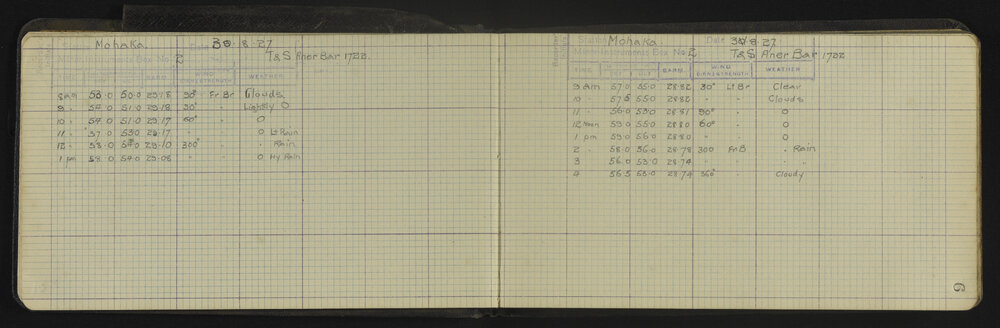 Station Mohaka Date 30.8.27
Box No 2 T&S Aner Bar 1722
BARM. WIND DIRN & STRENGTH WEATHER
8 am 53.0 50.0 29.18 30° Fr. Br Clouds
9 " 54.0 51.0 29.18 30° " Lightly O
10 " 54.0 51.0 29.17 60° " O
11 " 57.0 53.0 29.17 " " O Lt Rain
12 " 58.0 54.0 29.10 300° " " Rain
1 pm 58.0 54.0 29.08 " " O Hy Rain
Station Mohaka Date 31.8.27
Box No 2 T&S Aner Bar 1722
TIME BARM. WIND DIRN & STRENGTH WEATHER
9 am 57.0 55.0 28.82 30° Lt Br Clear
10 " 57.5 55.0 28.82 " Clouds
11 " 56.0 53.0 28.81 90° " O
12 Noon 59.0 55.0 28.80 60° " O
1 pm 59.0 56.0 28.80 " " O
2 " 58.0 56.0 28.78 300 Fr B " Rain
3 56.0 53.0 28.74 " " "
4 56.5 53.0 28.74 360° " Cloudy
6